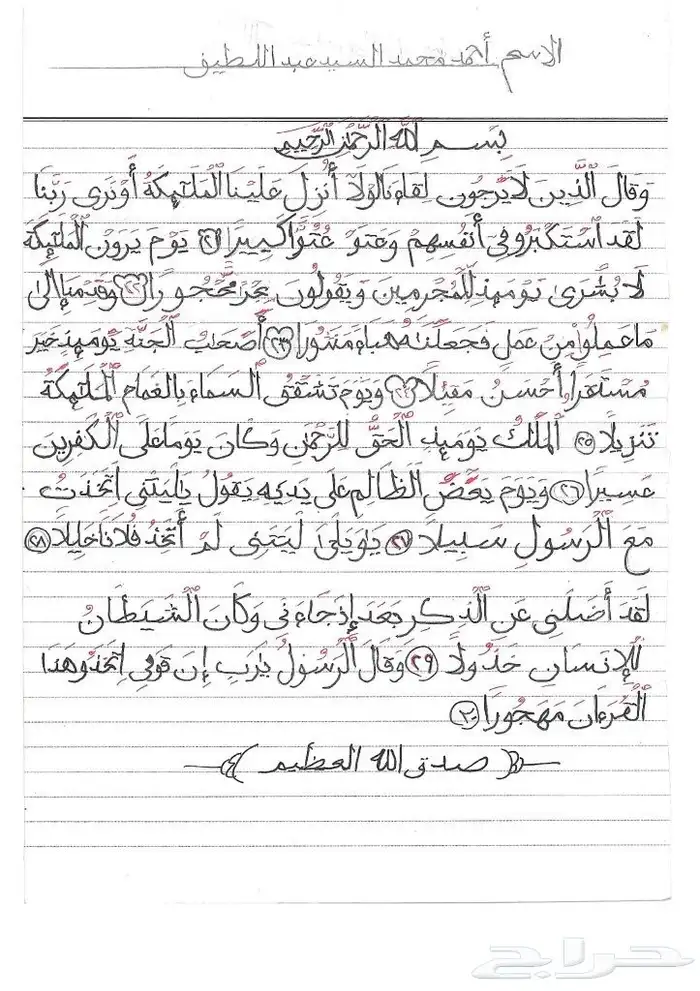 الاسم: أحمد محمد السيد عبد اللطيف
بِسمِ اللَّهِ الرَّحْمَٰنِ الرَّحِيمِ
وَقَالَ الَّذِينَ لَا يَرْجُونَ لِقَاءَنَا لَوْلَا أُنْزِلَ عَلَيْنَا الْمَلَٰئِكَةُ أَوْ نَرَى رَبَّنَا
لَقَدِ اسْتَكْبَرُو فِي أَنْفُسِهِمْ وَعَتَوْ عُتُوًّا كَبِيرًا ٢١ يَوْمَ يَرَوْنَ الْمَلَٰئِكَةَ
لَا بُشْرَىٰ يَوْمَئِذٍ لِلْمُجْرِمِينَ وَيَقُولُونَ حِجْرًا مَحْجُورًا ٢٢ وَقَدِمْنَا إِلَىٰ
مَا عَمِلُوا مِنْ عَمَلٍ فَجَعَلْنَٰهُ هَبَاءً مَنْثُورًا ٢٣ أَصْحَابُ الْجَنَّةِ يَوْمَئِذٍ خَيْرٌ
مُسْتَقَرًّا وَأَحْسَنُ مَقِيلًا ٢٤ وَيَوْمَ تَشَقَّقُ السَّمَاءُ بِالْغَمَامِ الْمَلَٰئِكَةُ
تَنْزِيلًا ٢٥ الْمُلْكُ يَوْمَئِذٍ الْحَقُّ لِلرَّحْمَٰنِ وَكَانَ يَوْمًا عَلَى الْكَٰفِرِينَ
عَسِيرًا ٢٦ وَيَوْمَ يَعَضُّ الظَّالِمُ عَلَى يَدَيْهِ يَقُولُ يَٰلَيْتَنِي اتَّخَذْتُ
مَعَ الرَّسُولِ سَبِيلًا ٢٧ يَاوَيْلَتَىٰ لَيْتَنِي لَمْ أَتَّخِذْ فُلَانًا خَلِيلًا ٢٨
لَقَدْ أَضَلَّنِي عَنِ الذِّكْرِ بَعْدَ إِذْ جَاءَنِي وَكَانَ الشَّيْطَانُ
لِلْإِنْسَانِ خَذُولًا ٢٩ وَقَالَ الرَّسُولُ يَٰرَبِّ إِنَّ قَوْمِي اتَّخَذُو هَٰذَا
الْقُرْءَانَ مَهْجُورًا ٣٠
صدق الله العظيم
حراج